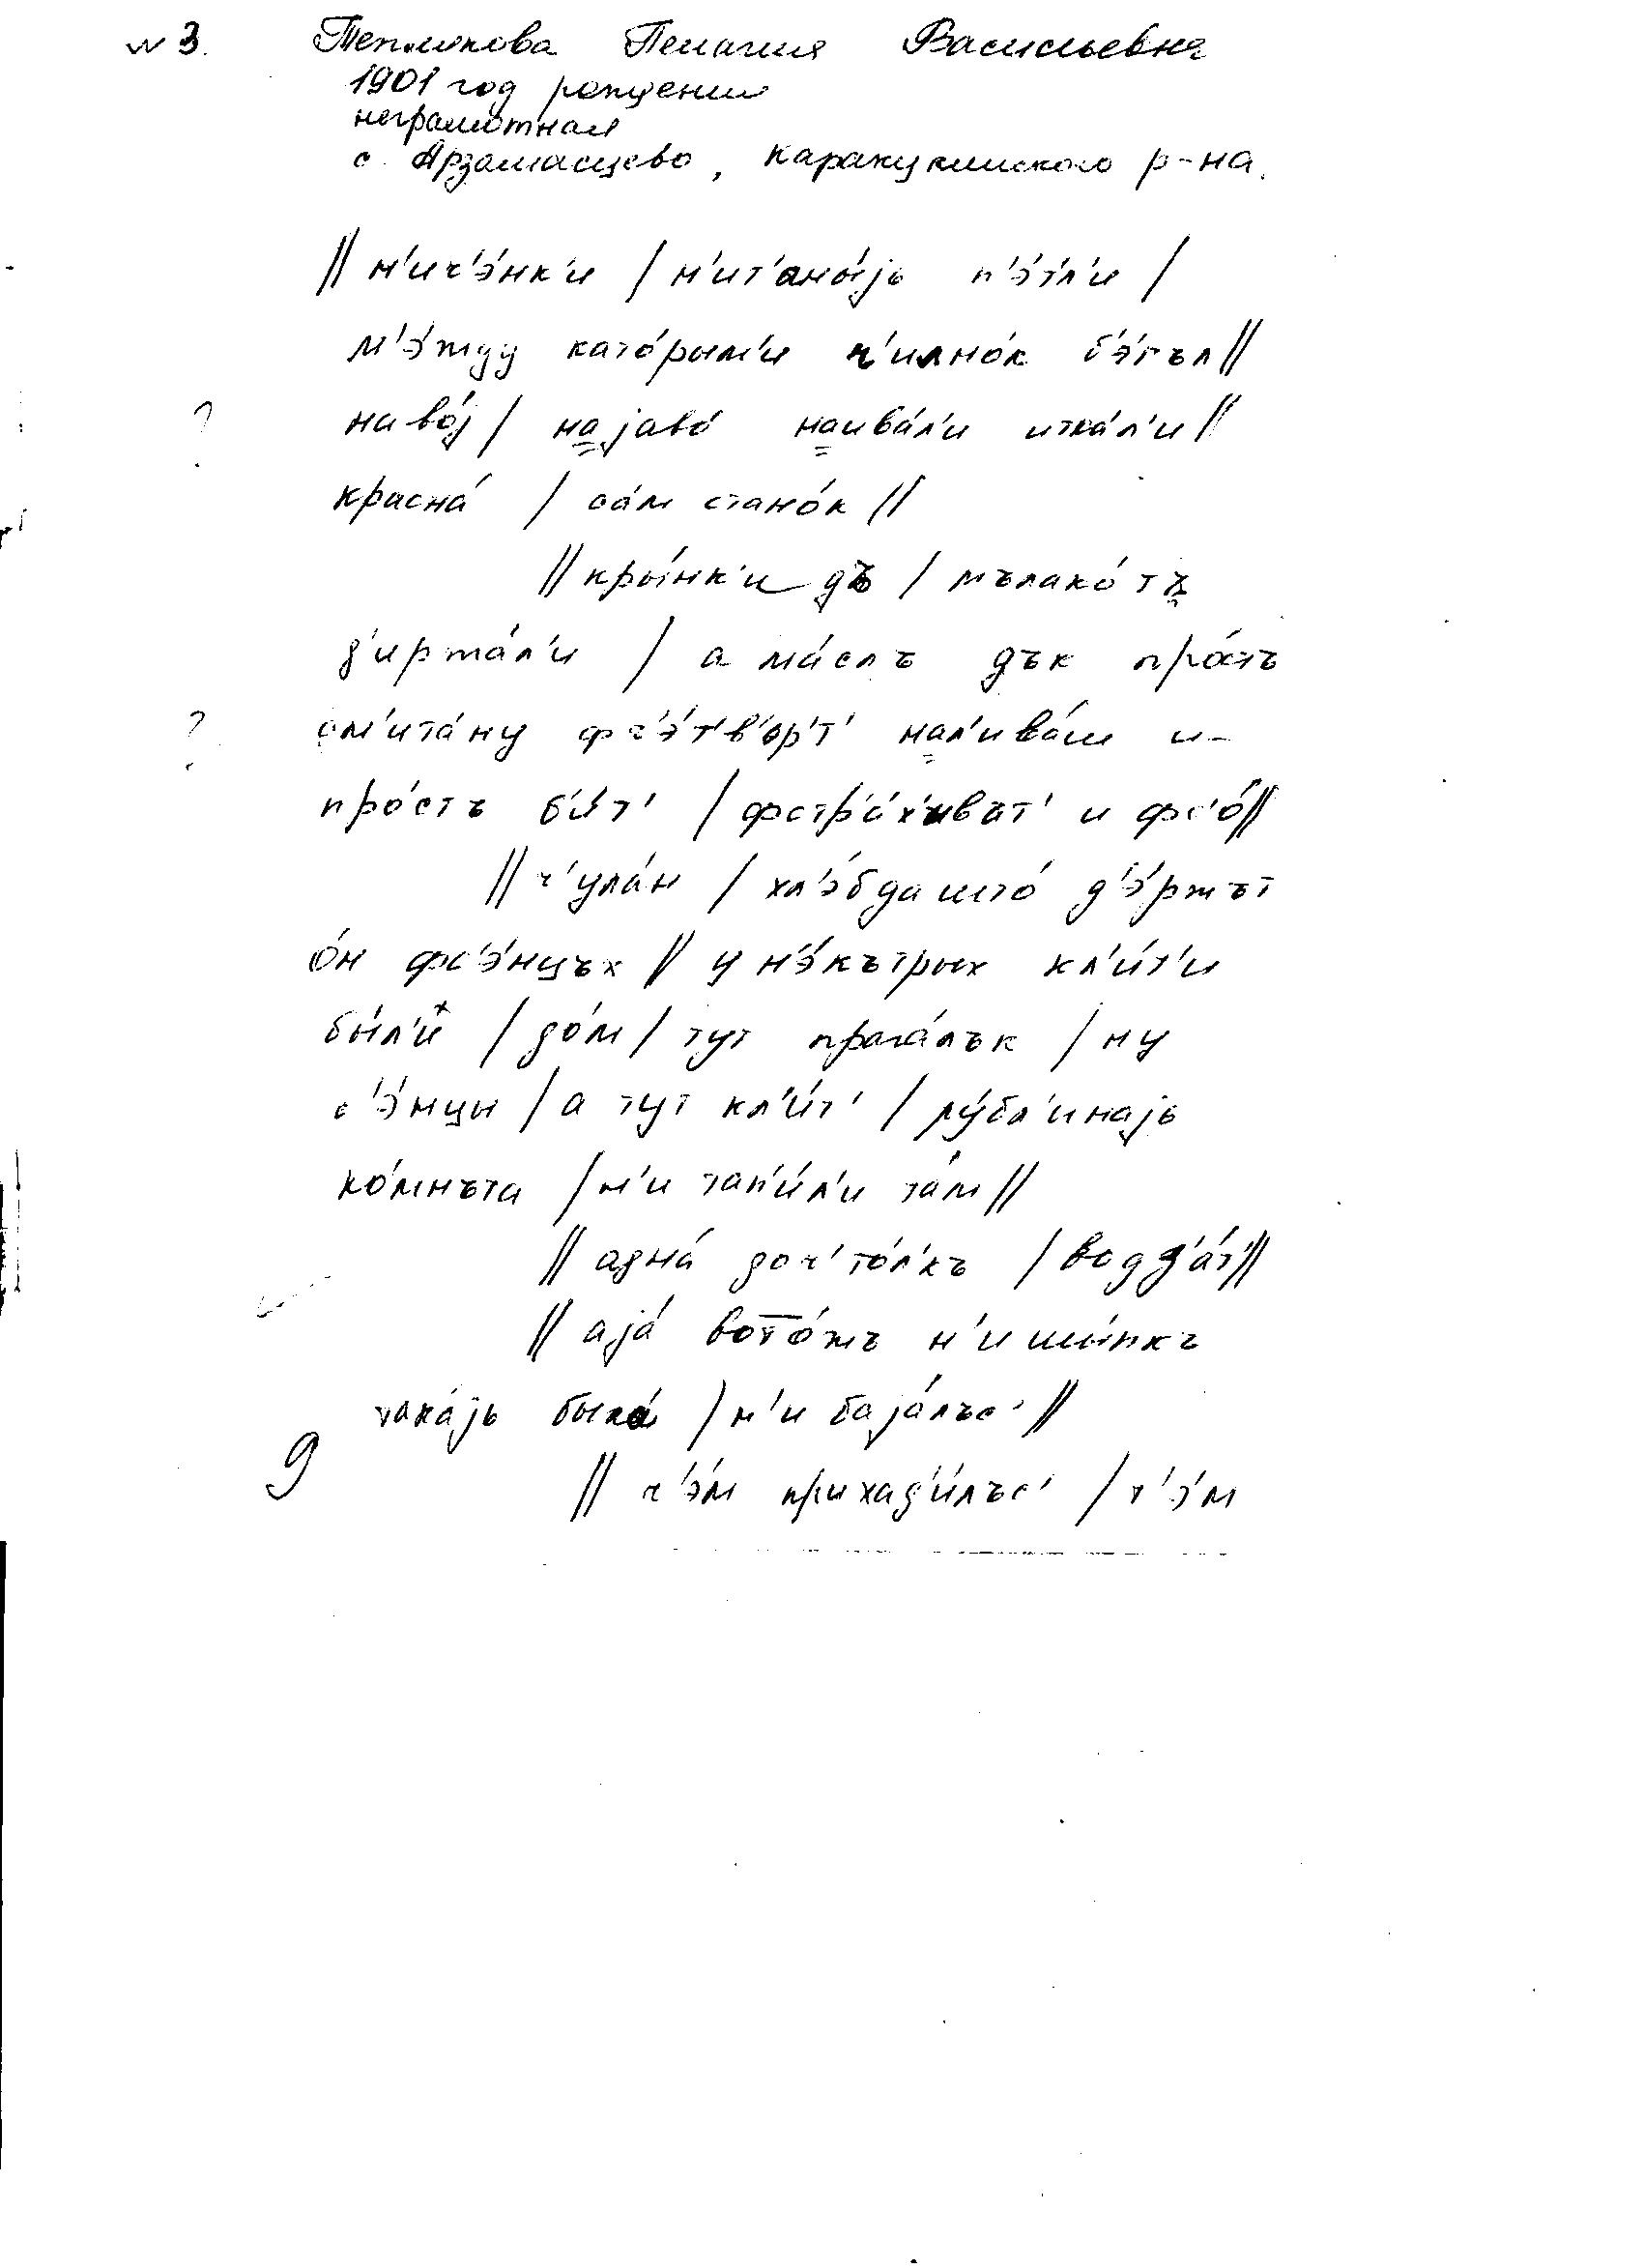 № 3. Теплюкова Пелагия Васильевна
1901 год рождения
неграмотная
с. Арзамасцево, Каракулинского р-на.
// н'ич'э́нк'и / н'ит'аны́jь п'э́тл'и /
м'э́жду като́рым'и ч'илно́к б'э́гъл //
? наво́j / на jаво́ наива́л'и итка́л'и //
красна́ / са́м стано́к //
// кры́нк'и дъ / мълако́ тъ
д'иржа́л'и / а ма́слъ дък про́стъ
? см'ита́ну фч'э́т'в'ьр'т' нал'ива́ш и-
про́стъ б'и́т' / фстр'а́х'ивът' и фс'о́ //
// ч'ула́н / хл'э́бда што́ д'э́ржът
о́н фс'э́нцъх // у н'э́кътрых кл'и́т'и
бы́л'и / до́м / тут прага́лък / ну
с'э́нцы / а тут кл'и́т' / ру́бл'инаjь
ко́мнъта / н'и тап'и́л'и та́м //
// адна́ доч' то́л'къ / вод д'а́т' //
// аjа́ вото́жъ н'и шы́пкъ
така́jь была́ / н'и баjа́лъс' //
9 // ч'э́м прихад'и́лъс' / т'э́м